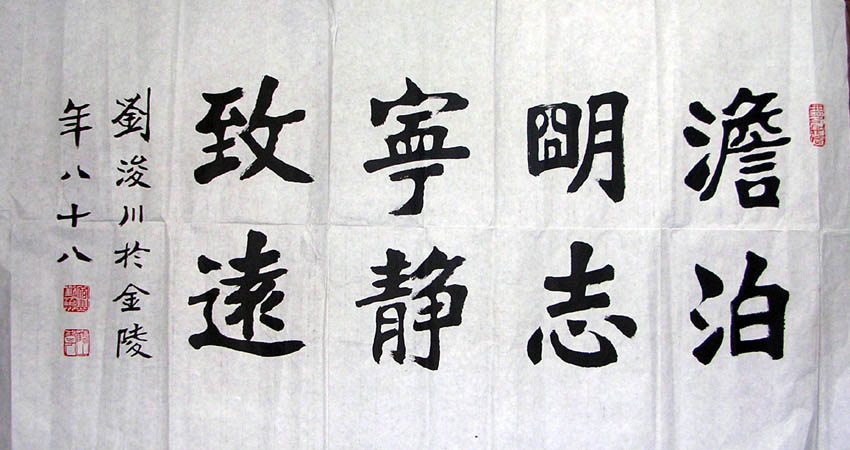 澹泊
明志
寧靜
致遠
劉浚川於金陵
年八十八